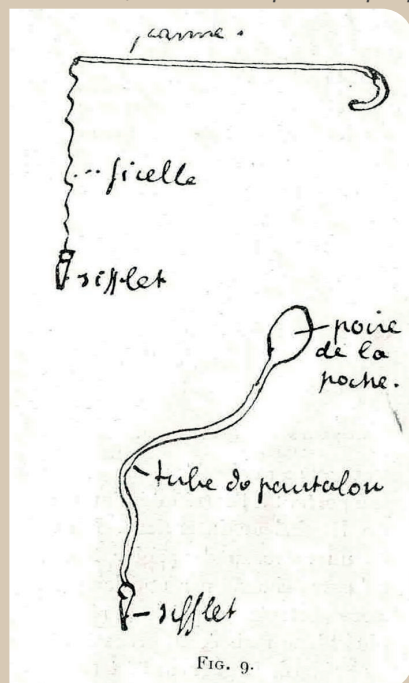 canne.
ficelle
sifflet
poire
de la
poche.
tube du pantalon
sifflet
FIG. 9.